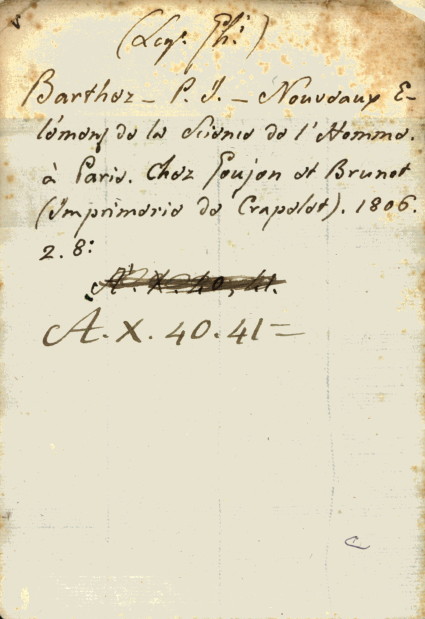 (Leg. Ph:)
Barthez - P. J. - Nouveaux E-
lémens de la Science de l'Homme.
à Paris. Chez Goujon et Brunot
(Imprimerie de Crapelet). 1806.
2. 8:
A. X. 40. 41.
A. X. 40. 41=